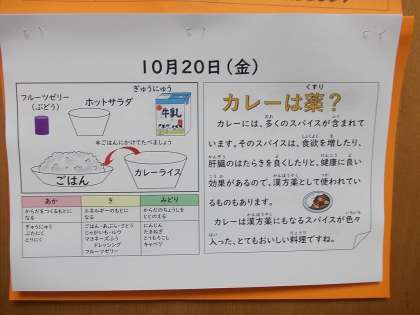 10月20日(金)
フルーツゼリー
(ぶどう)
ホットサラダ
ぎゅうにゅう
牛乳
*ごはんにかけてたべましょう
ごはん
カレーライス
あか
き
みどり
からだをつくるもとに
なる
エネルギーのもとに
なる
からだのちょうしを
ととのえる
ぎゅうにゅう
ぶたにく
とりにく
ごはん・あぶら・さとう
じゃがいも・ルウ
マヨネーズふう
ドレッシング
フルーツゼリー
にんじん
たまねぎ
とうもろこし
キャベツ
くすり
カレーは薬?
カレーには、多くのスパイスが含まれて
います。そのスパイスは、食欲を増したり、
肝臓のはたらきを良くしたりと、健康に良い
効果があるので、漢方薬として使われてい
るものもあります。
カレーは漢方薬にもなるスパイスが色々
入った、とてもおいしい料理ですね。